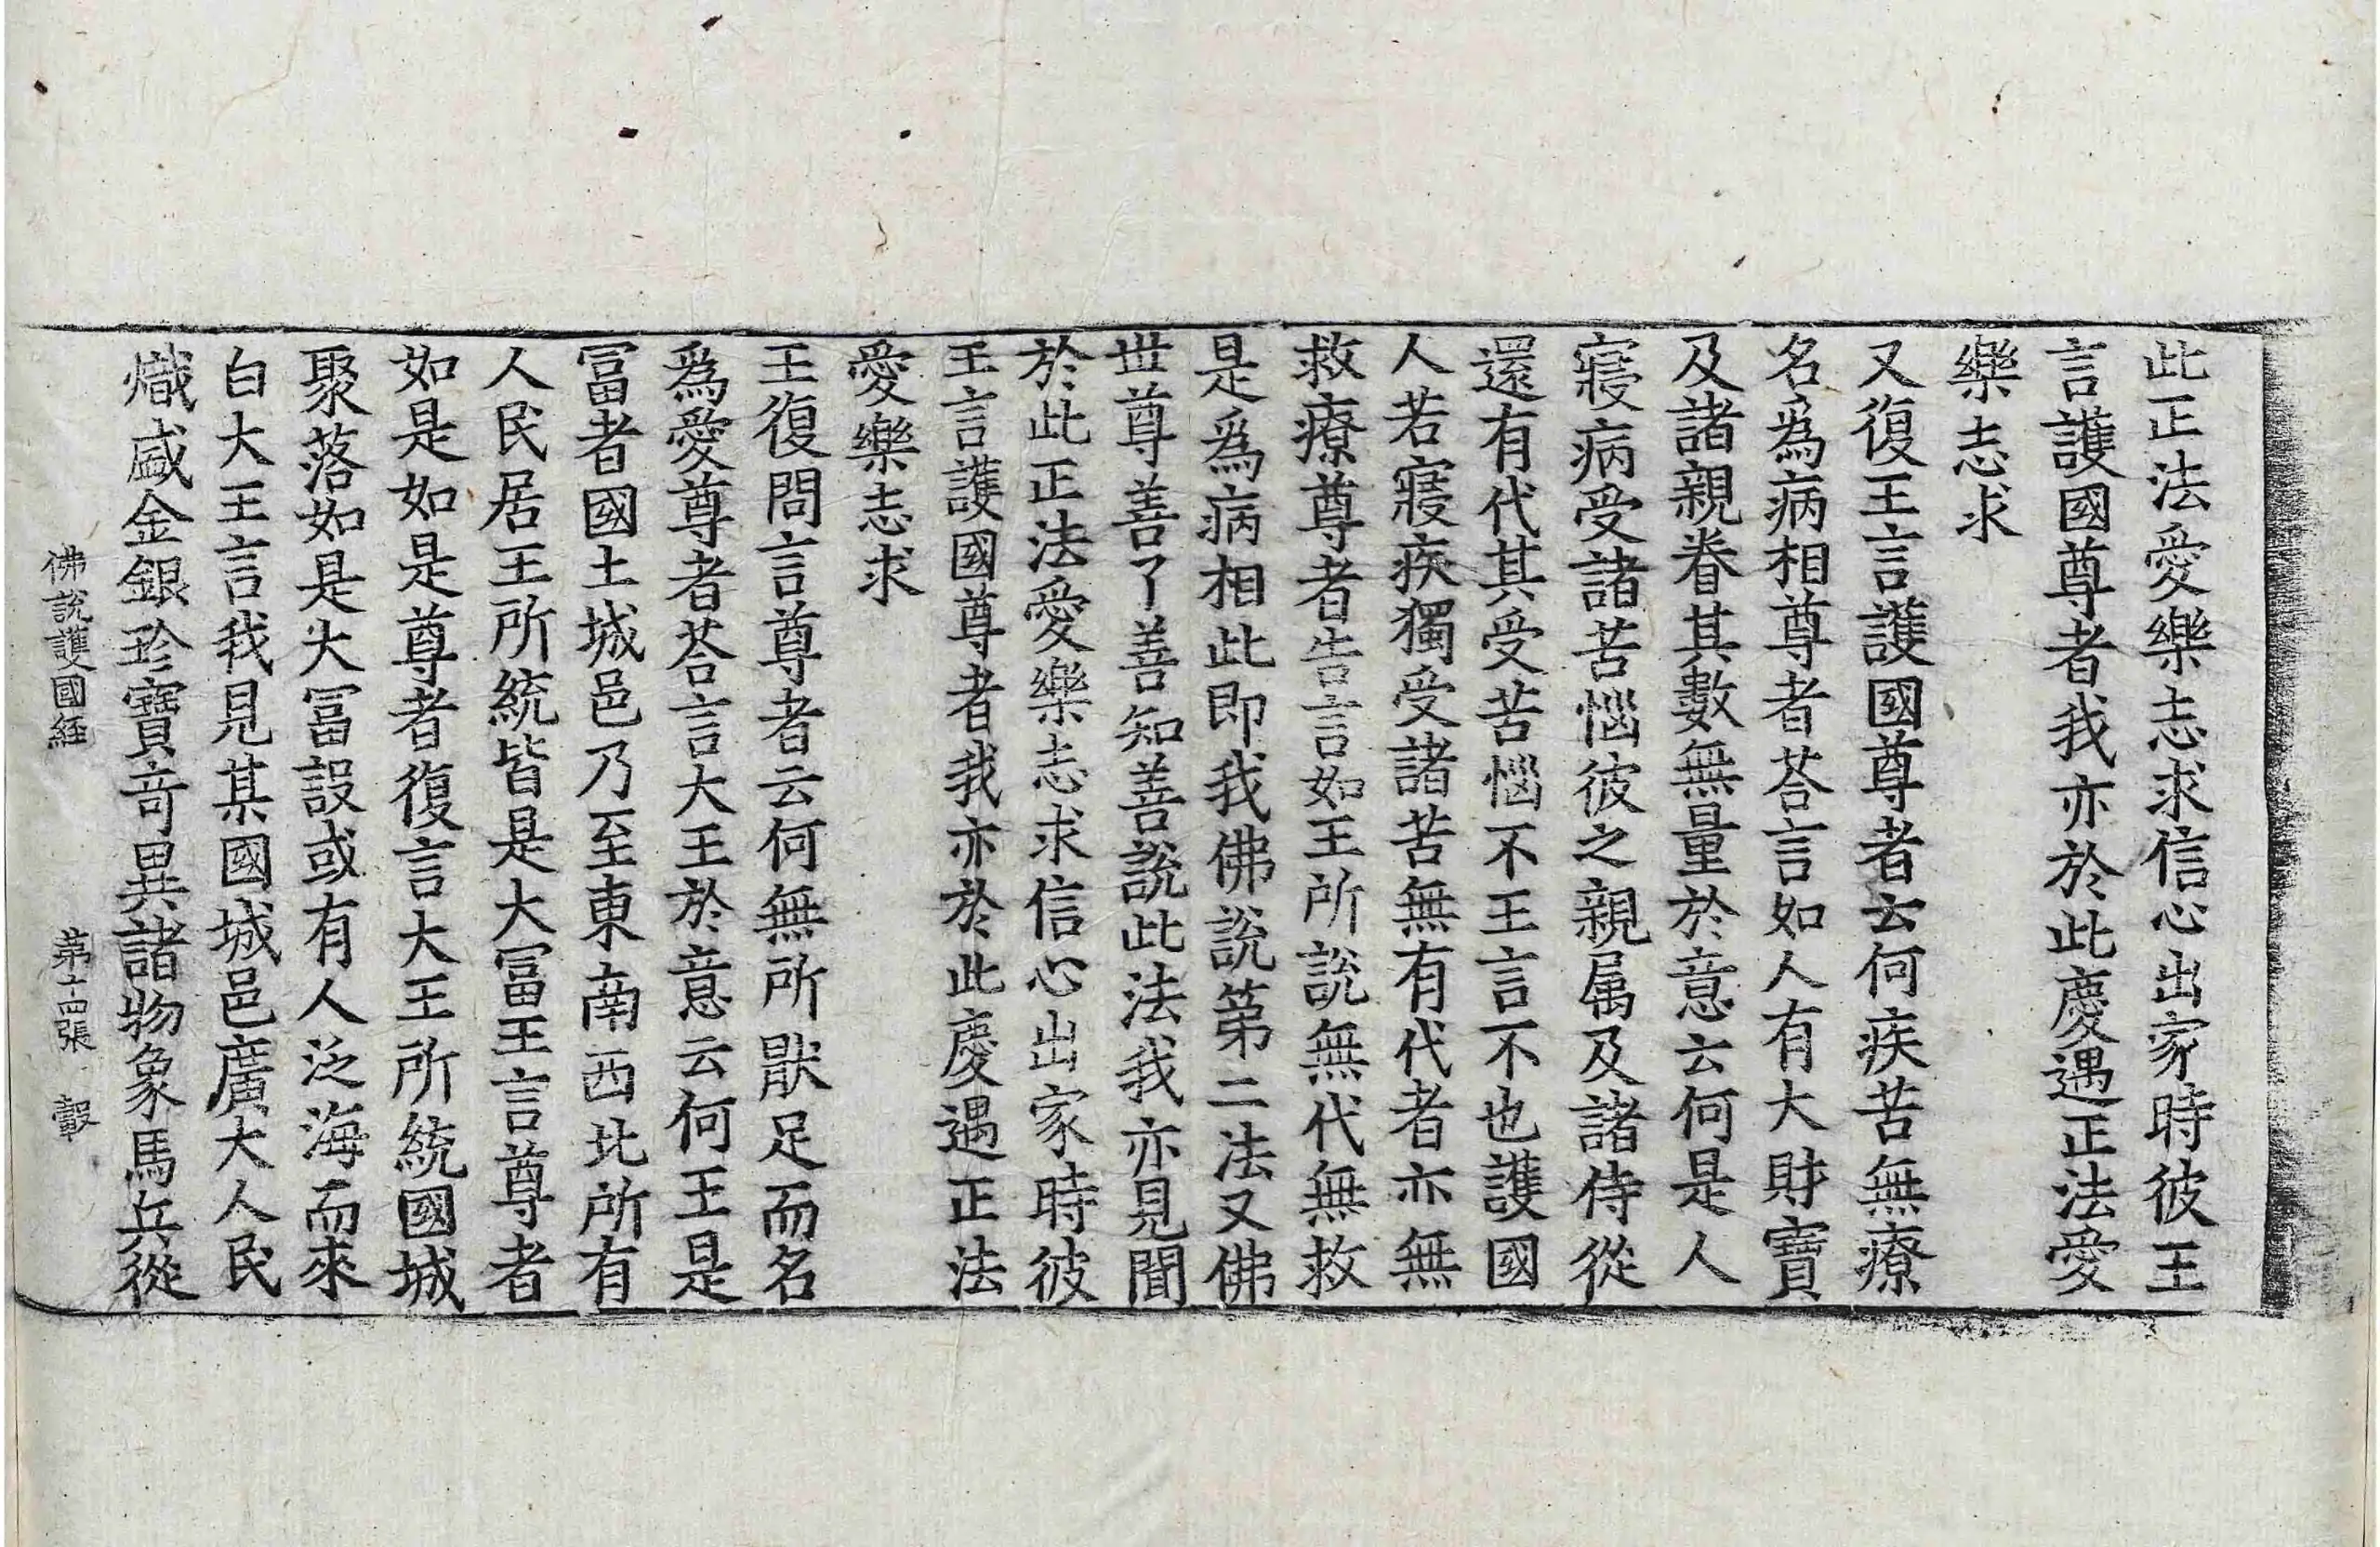 此正法愛樂志求信心出家時彼王
言護國尊者我亦於此慶遇正法愛
樂志求
又復王言護國尊者云何疾苦無療
名為病相尊者荅言如人有大財寶
及諸親眷其數無量於意云何是人
寢病受諸苦惱彼之親属及諸侍從
還有代其受苦惱不王言不也護國
人若寢疾獨受諸苦無有代者亦無
救療尊者告言如王所說無代無救
是爲病相此即我佛說第二法又佛
世尊善了善知善說此法我亦見聞
於此正法愛樂志求信心出家時彼
王言護國尊者我亦於此慶遇正法
愛樂志求
王復問言尊者云何無所猒足而名
爲愛尊者荅言大王於意云何王是
冨者國土城邑乃至東南西北所有
人民居王所統皆是大冨王言尊者
如是如是尊者復言大王所統國城
聚落如是大冨設或有人泛海而來
白大王言我見某國城邑廣大人民
熾盛金銀珍寶奇異諸物象馬兵從
佛說護國經 第十四張 㲄